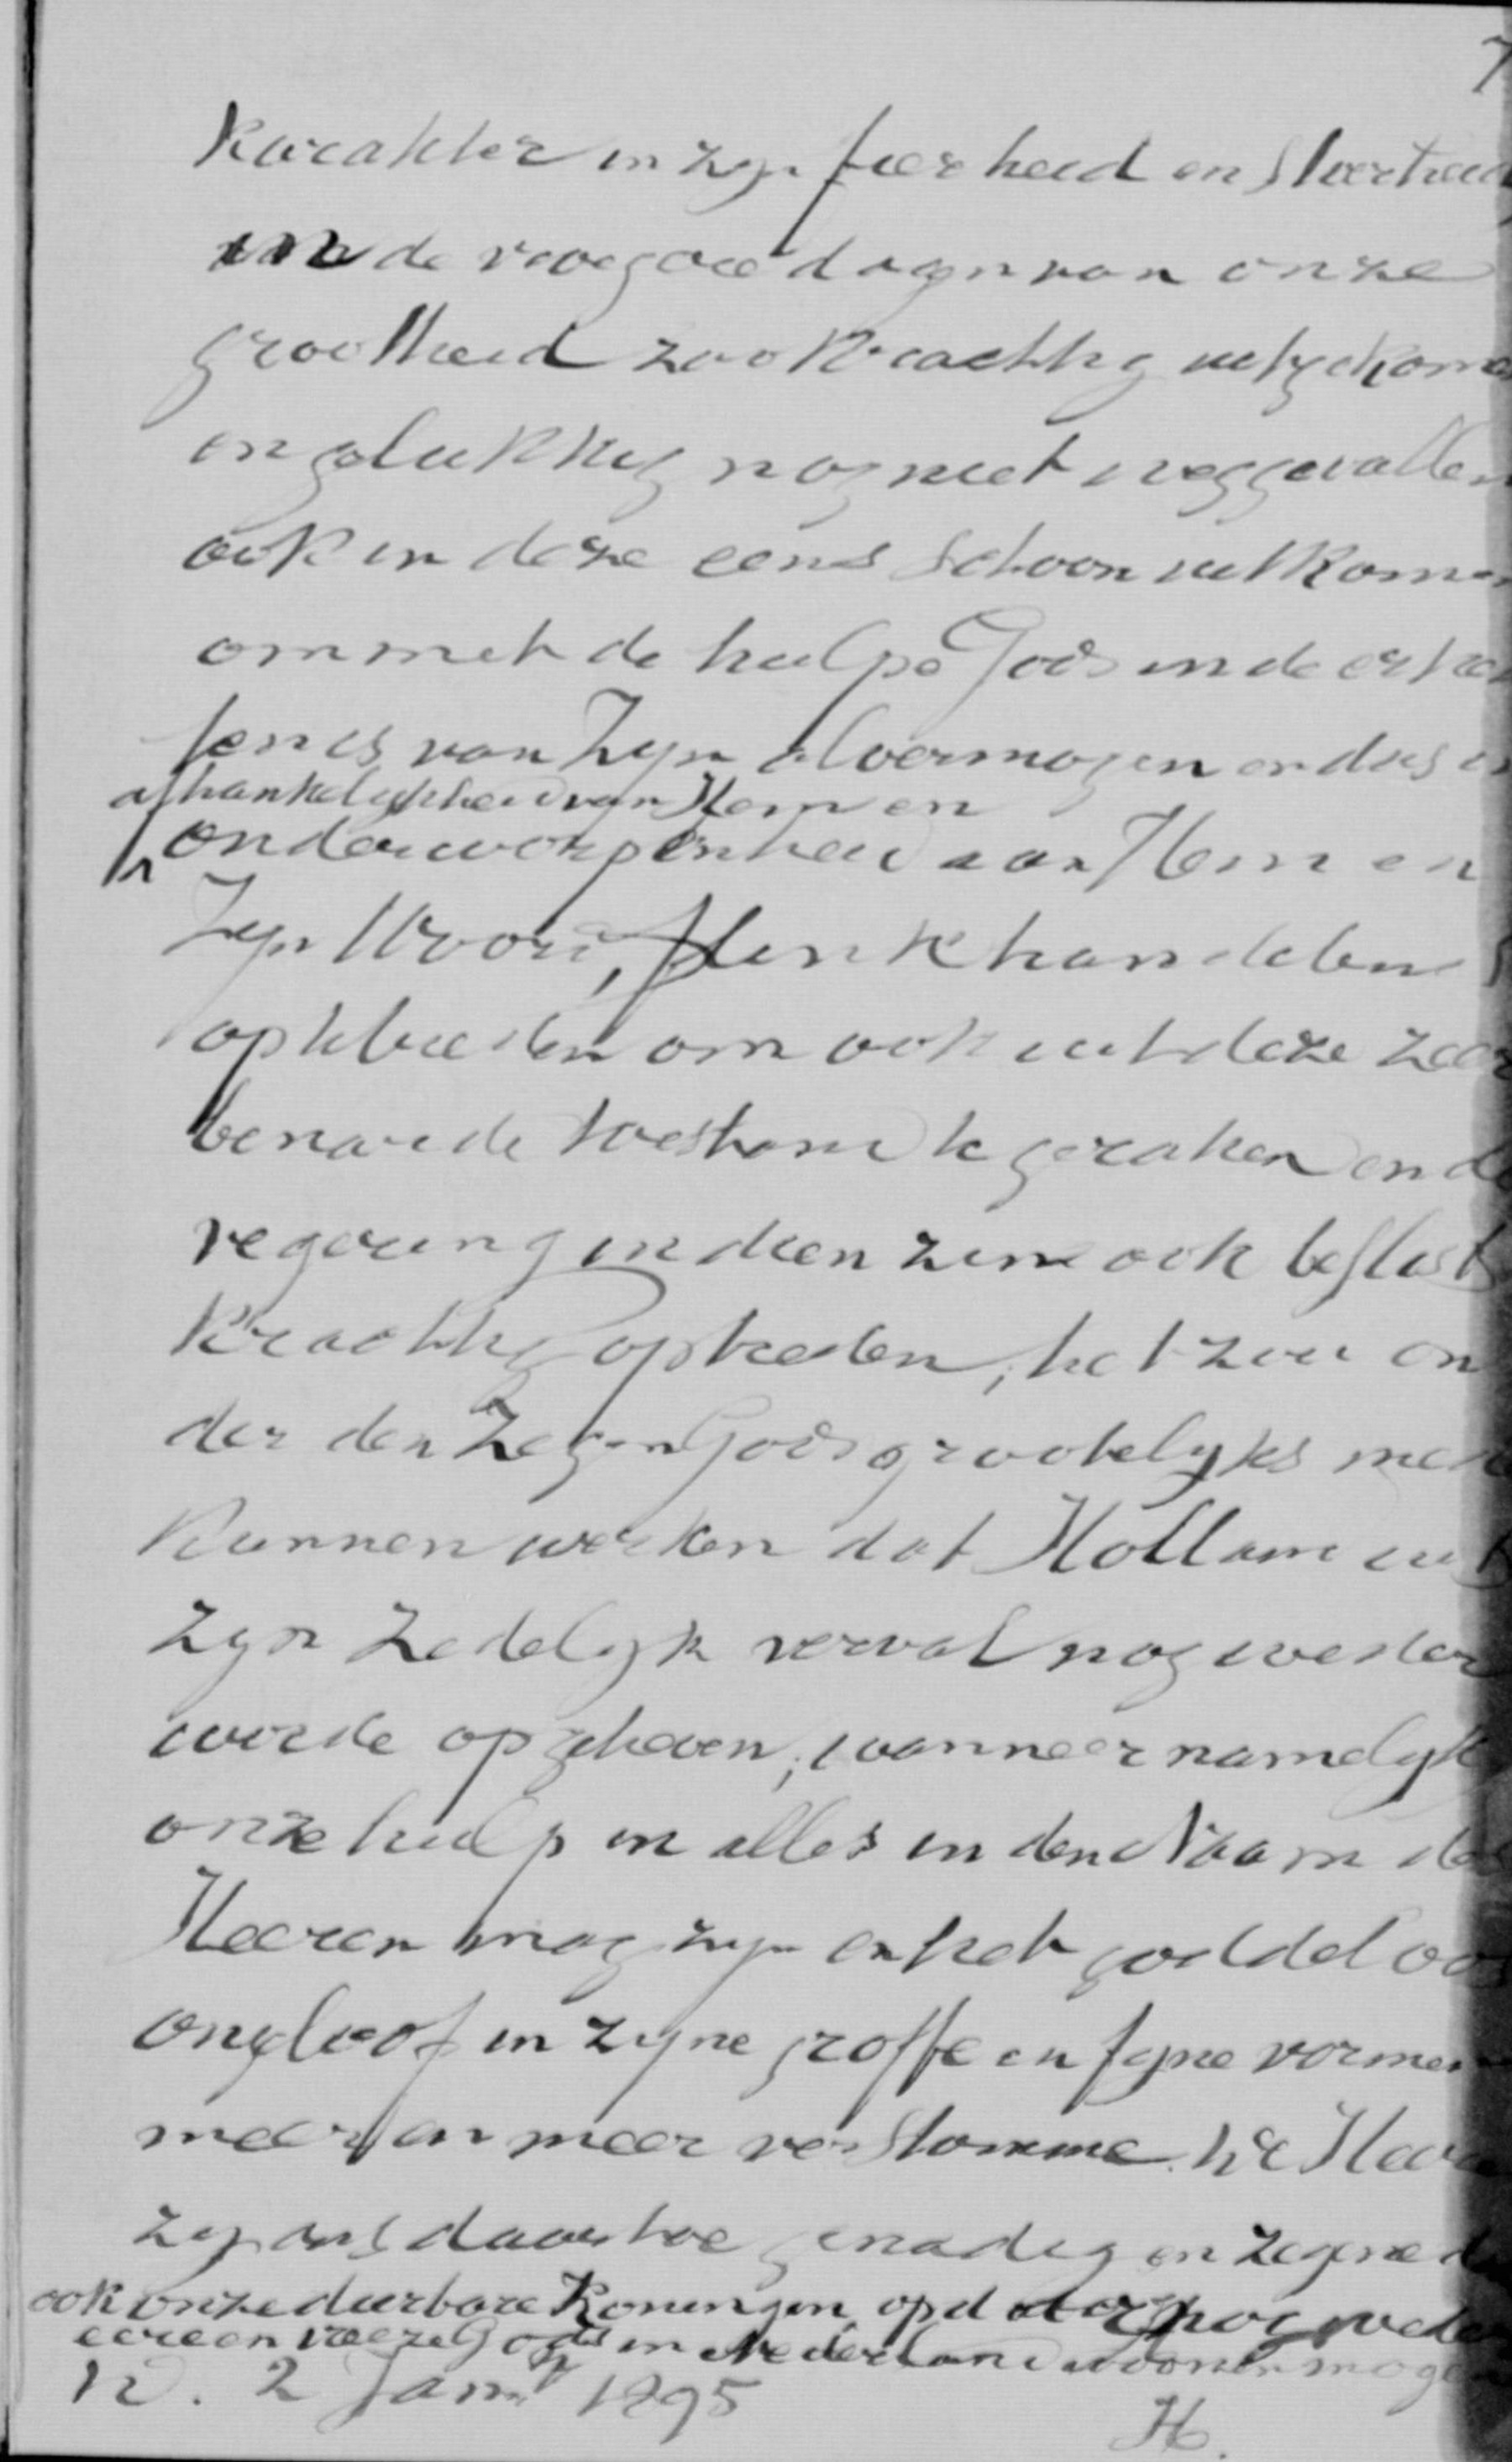 7
Karakter in zijn fierheid en stoerheid
in de vroegere dagen van onze
grootheid zoo krachtig uitgekome
en gelukkig nog niet weggevallen
ook in deze eens schoon uitkomen
om met de hulpe Gods in de erken
tenis van Zijn alvermogen en dus in
afhankelykheid van Hem en
onderworpenheid aan Hem en
Zijn Woord, flink handelen
optreden om ook uit deze zeer
benarde toestand te geraken en de
regering in dien zin ook beslist
Krachtig optreden, het zou on
der den Zegen Gods grootelyks mede
Kunnen werken dat Holland uit
zyn zedelyk verval nog weder
worde opgeheven, wanneer namelyk
onze hulp in alles in den Naam des
Heeren mag zyn en het goddeloos
ongeloof in zyne groffe en fyne vormen
meer en meer verstomme. De Heere
zij ons daartoe genadig en zegene
ook onze dierbare Koningin, opd nog weder
eere en vreeze Gods in Nederland wonen moge
W. 2 Jan 1895
H.